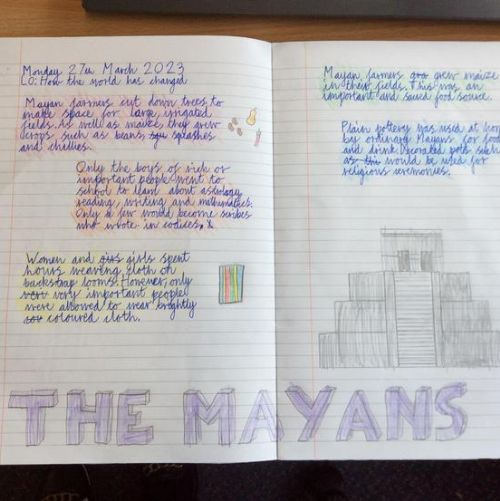 Monday 27th March 2023
LO: How the world has changed
Mayan farmers cut down trees to
make space for large, irrigated
fields. As well as maize, they grew
crops such as beans, squashes
and chillies.
Only the boys of rich or
important people went to
school to learn about astrology,
reading, writing and mathematics.
Only a few would become scribes
who wrote in codices.
Women and girls spent
hours weaving cloth on
backstrap looms. However, only
very important people
were allowed to wear brightly
coloured cloth.
Mayan farmers grew maize
in their fields. This was an
important and sacred food source.
Plain pottery was used at
by ordinary Mayans for food
and drink. Decorated pots such
as would be used for
religious ceremonies.
THE MAYANS